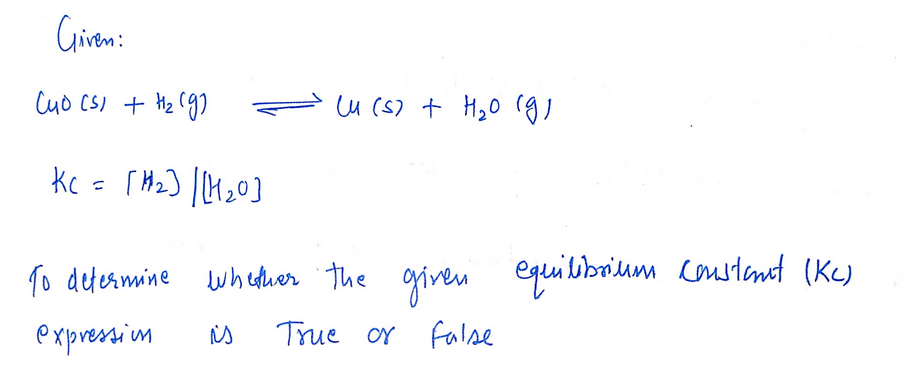 Given:
CuO (s) + H₂(g) ⇌ Cu (s) + H₂O (g)
Kc = [H₂] / [H₂O]
To determine whether the given equilibrium constant (Kc)
expression is True or False